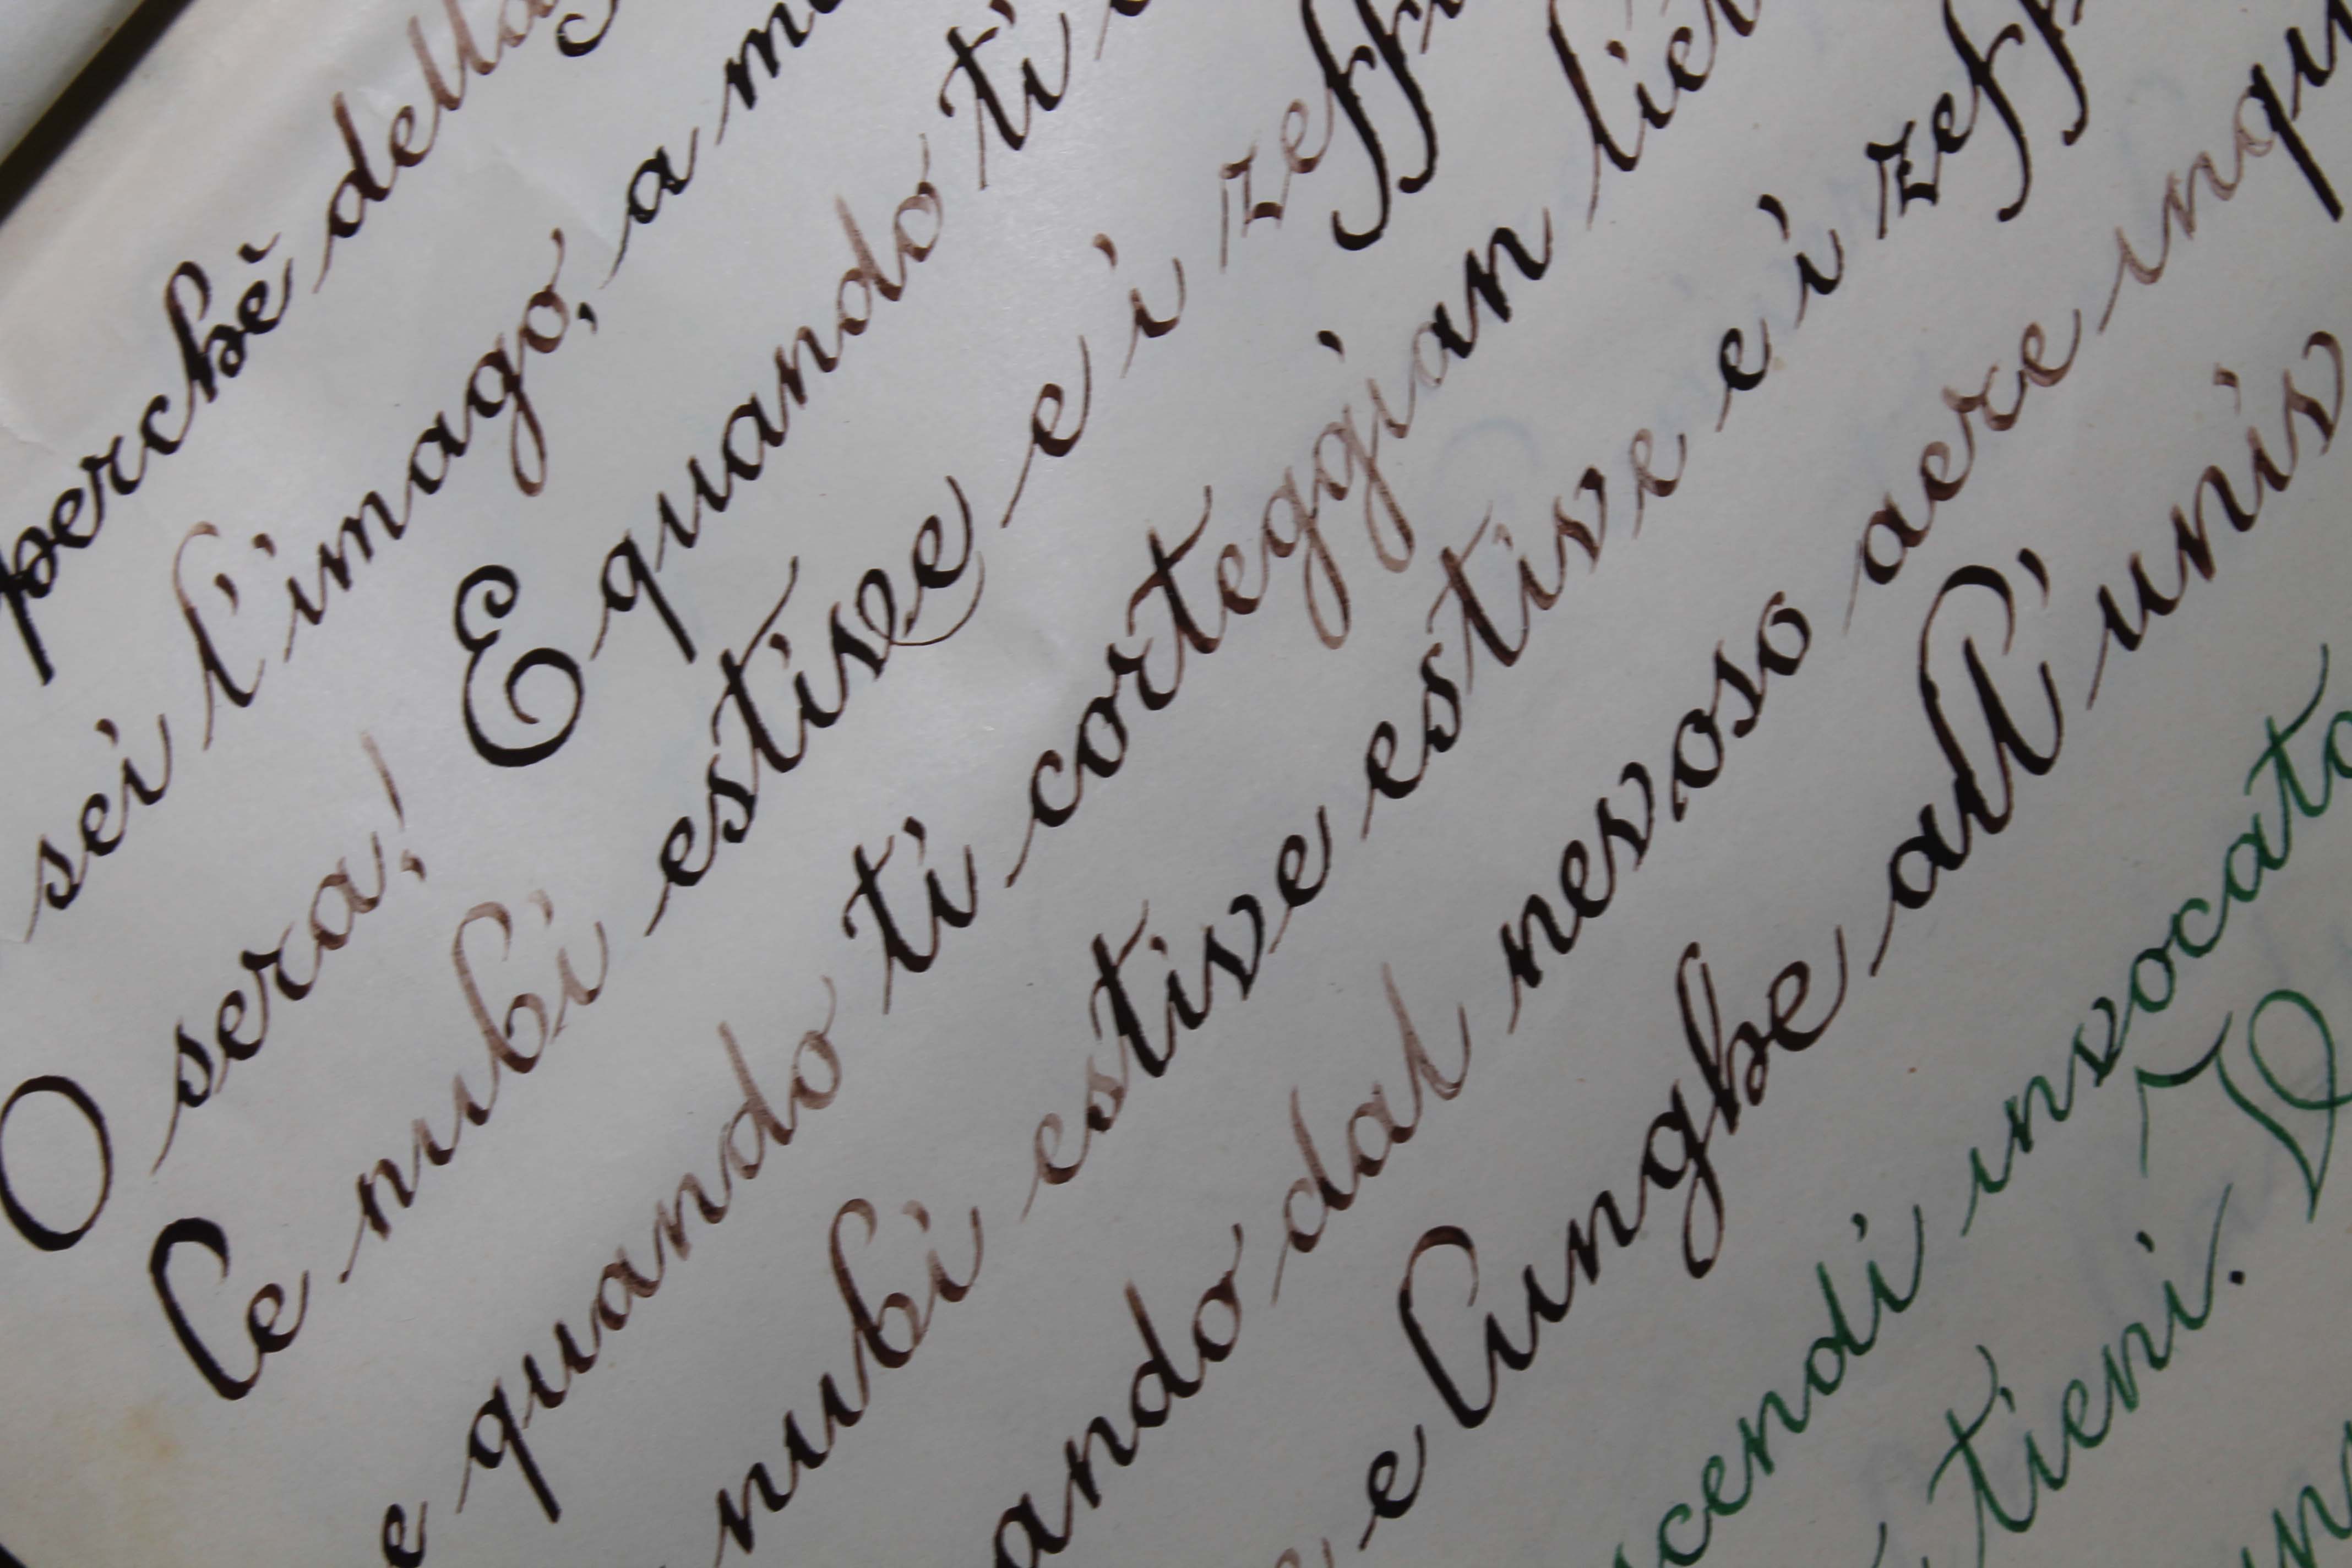 perchè della
sei l'imago, a me
O sera! E quando ti
le nubi estive e i zeff
e quando ti corteggian lie
nubi estive estive e i zeff
ando dal nevoso aere inqu
e lunghe all'univ
scendi invocata
tieni.